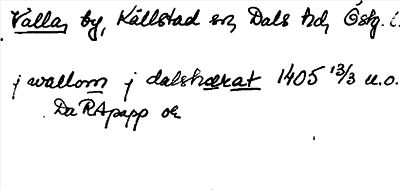 Valla, by, Källstad sn, Dals hd, Östg. l.
j wallom j dalshærat 1405 13/3 u.o.
DaRApapp or